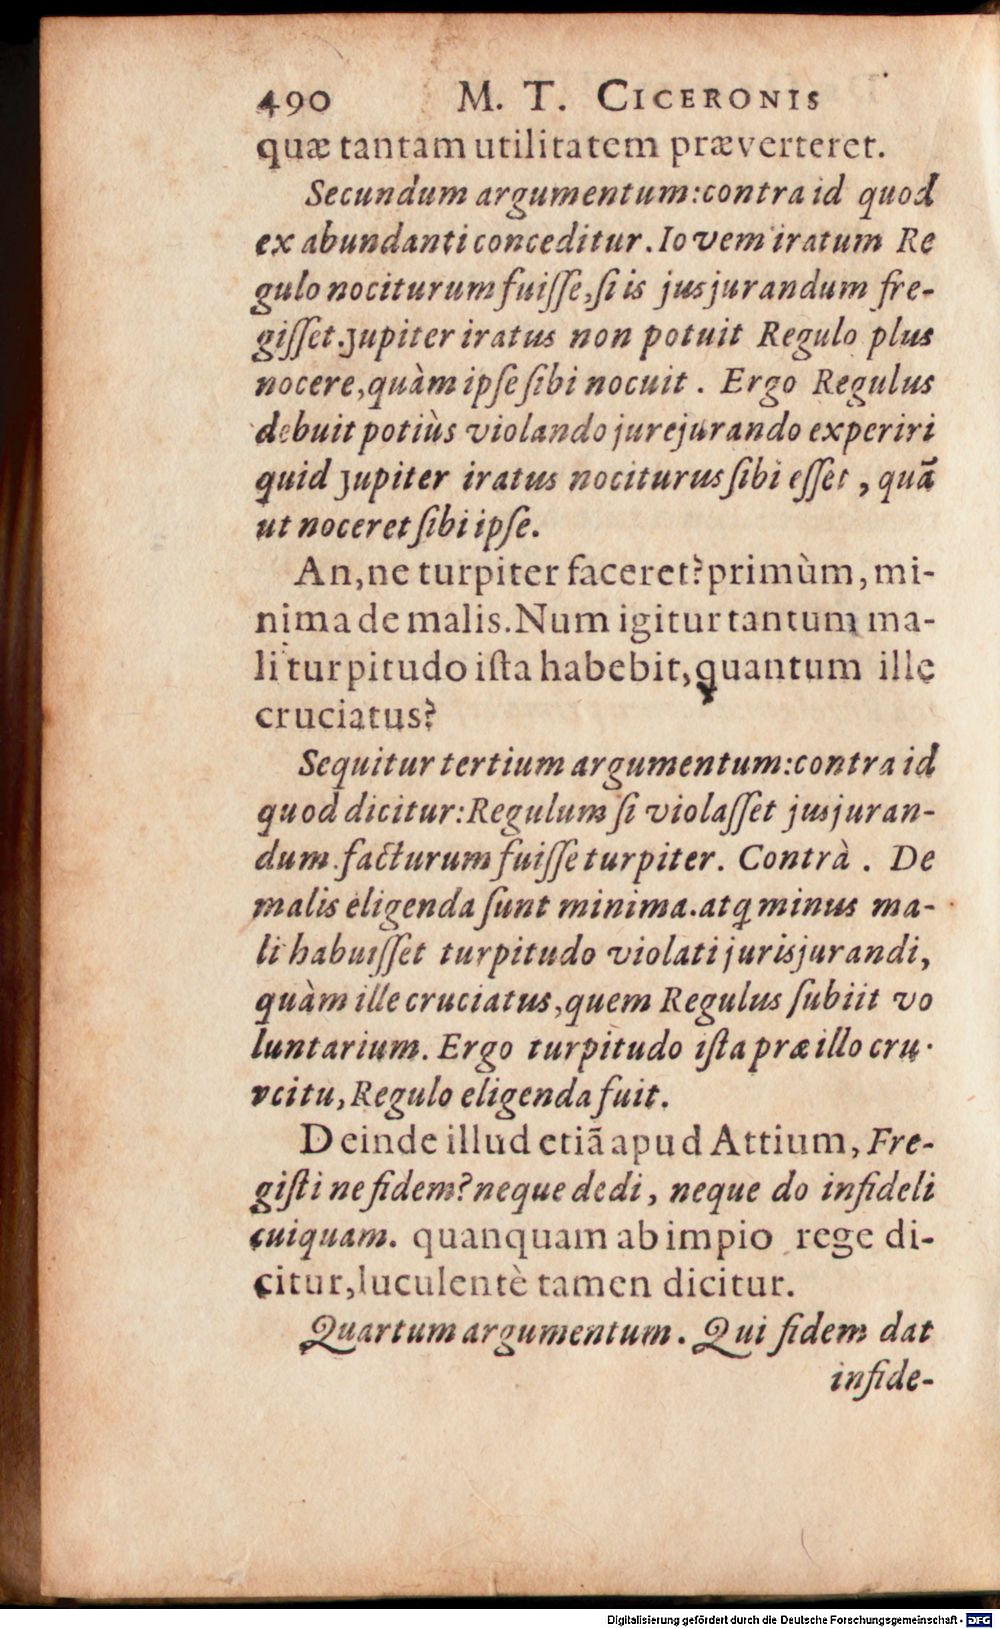 490 M. T. CICERONIS
quæ tantam utilitatem præverteret.
Secundum argumentum:contra id quod
ex abundanti conceditur.Iovem iratum Re
gulo nociturum fuiſſe,ſi is jusjurandum fre-
giſſet.Jupiter iratus non potuit Regulo plus
nocere,quàm ipſe ſibi nocuit . Ergo Regulus
debuit potiùs violando jurejurando experiri
quid Jupiter iratus nociturus ſibi eſſet , quā
ut noceret ſibi ipſe.
An,ne turpiter faceret?primùm,mi-
nima de malis.Num igitur tantum ma-
li turpitudo iſta habebit,quantum ille
cruciatus?
Sequitur tertium argumentum:contra id
quod dicitur:Regulum ſi violaſſet jusjuran-
dum facturum fuiſſe turpiter. Contrà . De
malis eligenda ſunt minima.atq; minus ma-
li habuiſſet turpitudo violati jurisjurandi,
quàm ille cruciatus,quem Regulus ſubiit vo
luntarium. Ergo turpitudo iſta præ illo cru-
vcitu, Regulo eligenda fuit.
Deinde illud etiā apud Attium, Fre-
giſti ne fidem?neque dedi, neque do infideli
cuiquam. quanquam ab impio rege di-
citur,luculentè tamen dicitur.
Quartum argumentum. Qui fidem dat
infide-
Digitalisierung gefördert durch die Deutsche Forschungsgemeinschaft - DFG